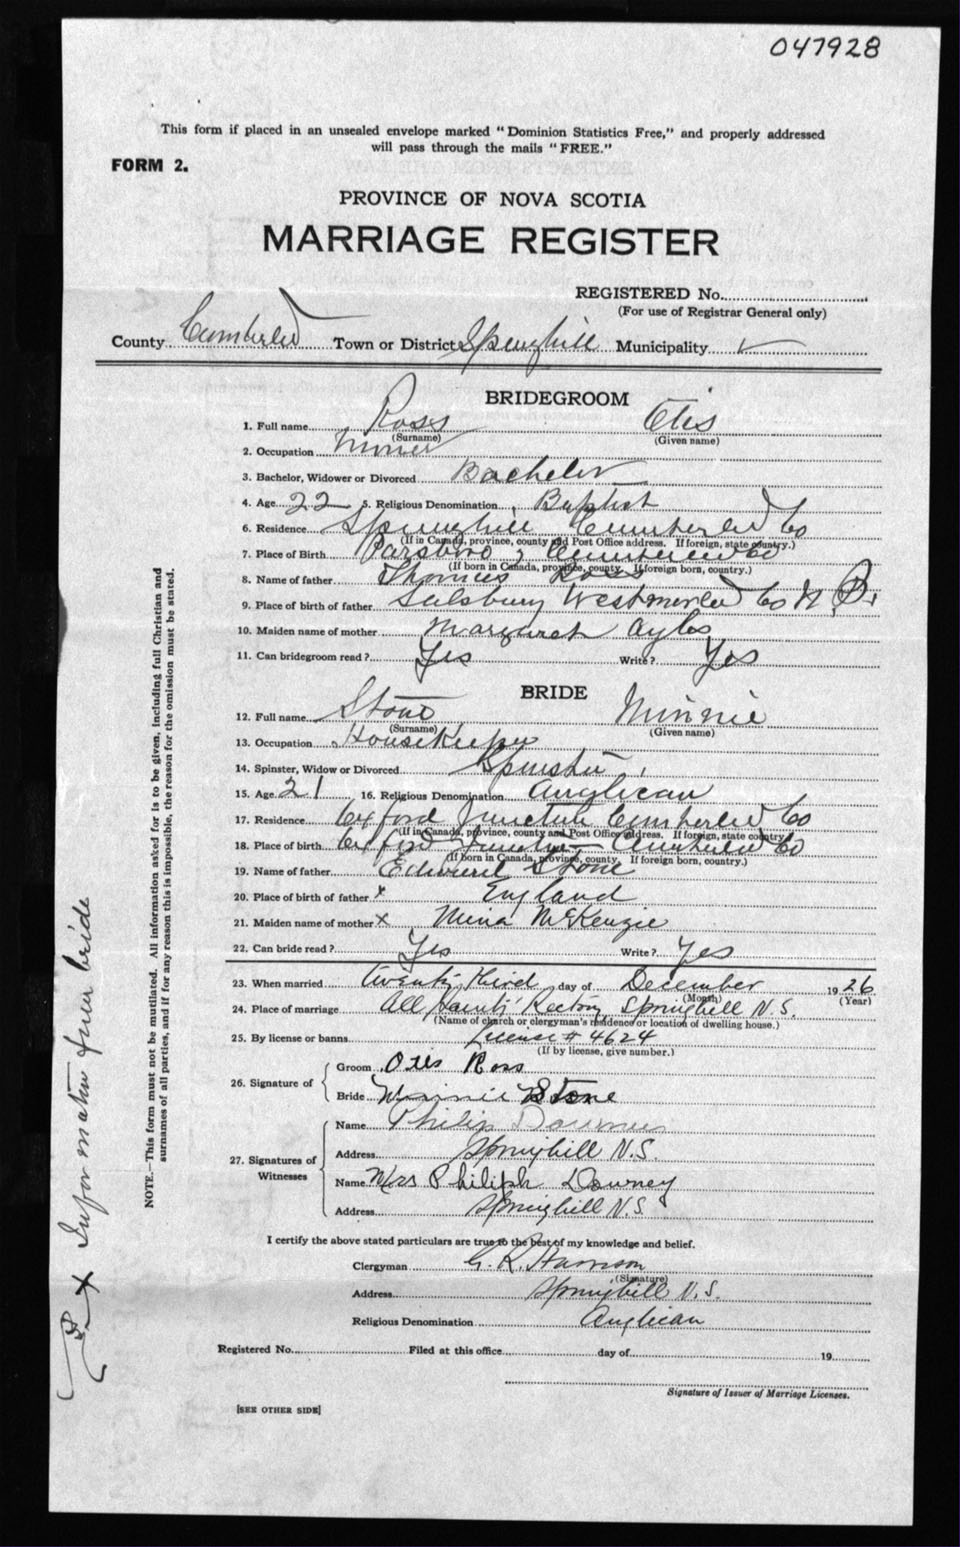 047928
This form if placed in an unsealed envelope marked "Dominion Statistics Free," and properly addressed
will pass through the mails "FREE."
FORM 2.
PROVINCE OF NOVA SCOTIA
MARRIAGE REGISTER
REGISTERED No.
(For use of Registrar General only)
County Cumberled Town or District Springhill Municipality
BRIDEGROOM
1. Full name Ross Otis
(Surname) (Given name)
2. Occupation Miner
3. Bachelor, Widower or Divorced Bachelor
4. Age 22 5. Religious Denomination Baptist
6. Residence Springhill Cumberled Co
(If in Canada, province, county and Post Office address. If foreign, state country.)
7. Place of Birth Parsboro, Cumberled Co
(If born in Canada, province, county. If foreign born, country.)
8. Name of father Thomas Ross
9. Place of birth of father Salsbury Westmorled Co N.B.
10. Maiden name of mother Margaret Ayles
11. Can bridegroom read? Yes Write? Yes
BRIDE
12. Full name Stone Minnie
(Surname) (Given name)
13. Occupation Housekeeper
14. Spinster, Widow or Divorced Spinster
15. Age 21 16. Religious Denomination Anglican
17. Residence Oxford Junction Cumberled Co
(If in Canada, province, county and Post Office address. If foreign, state country.)
18. Place of birth Oxford Junction Cumberled Co
(If born in Canada, province, county. If foreign born, country.)
19. Name of father Edward Stone
20. Place of birth of father x England
21. Maiden name of mother x Mina McKenzie
22. Can bride read? Yes Write? Yes
23. When married twenty third day of December 1926
(Month) (Year)
24. Place of marriage All Saints' Rectory Springhill N.S.
(Name of church or clergyman's residence or location of dwelling house.)
25. By license or banns License # 4624
(If by license, give number.)
26. Signature of
Groom Otis Ross
Bride Minnie Stone
27. Signatures of Witnesses
Name Philip
Address Springhill N.S.
Name Mrs Philiph Downey
Address Springhill N.S.
I certify the above stated particulars are true to the best of my knowledge and belief.
Clergyman G. R. Harrison
(Signature)
Address Springhill N.S.
Religious Denomination Anglican
Registered No. Filed at this office day of 19
Signature of Issuer of Marriage Licenses.
[SEE OTHER SIDE]
NOTE.—This form must not be mutilated. All information asked for is to be given, including full Christian and
surnames of all parties, and if for any reason this is impossible, the reason for the omission must be stated.
x Information from bride